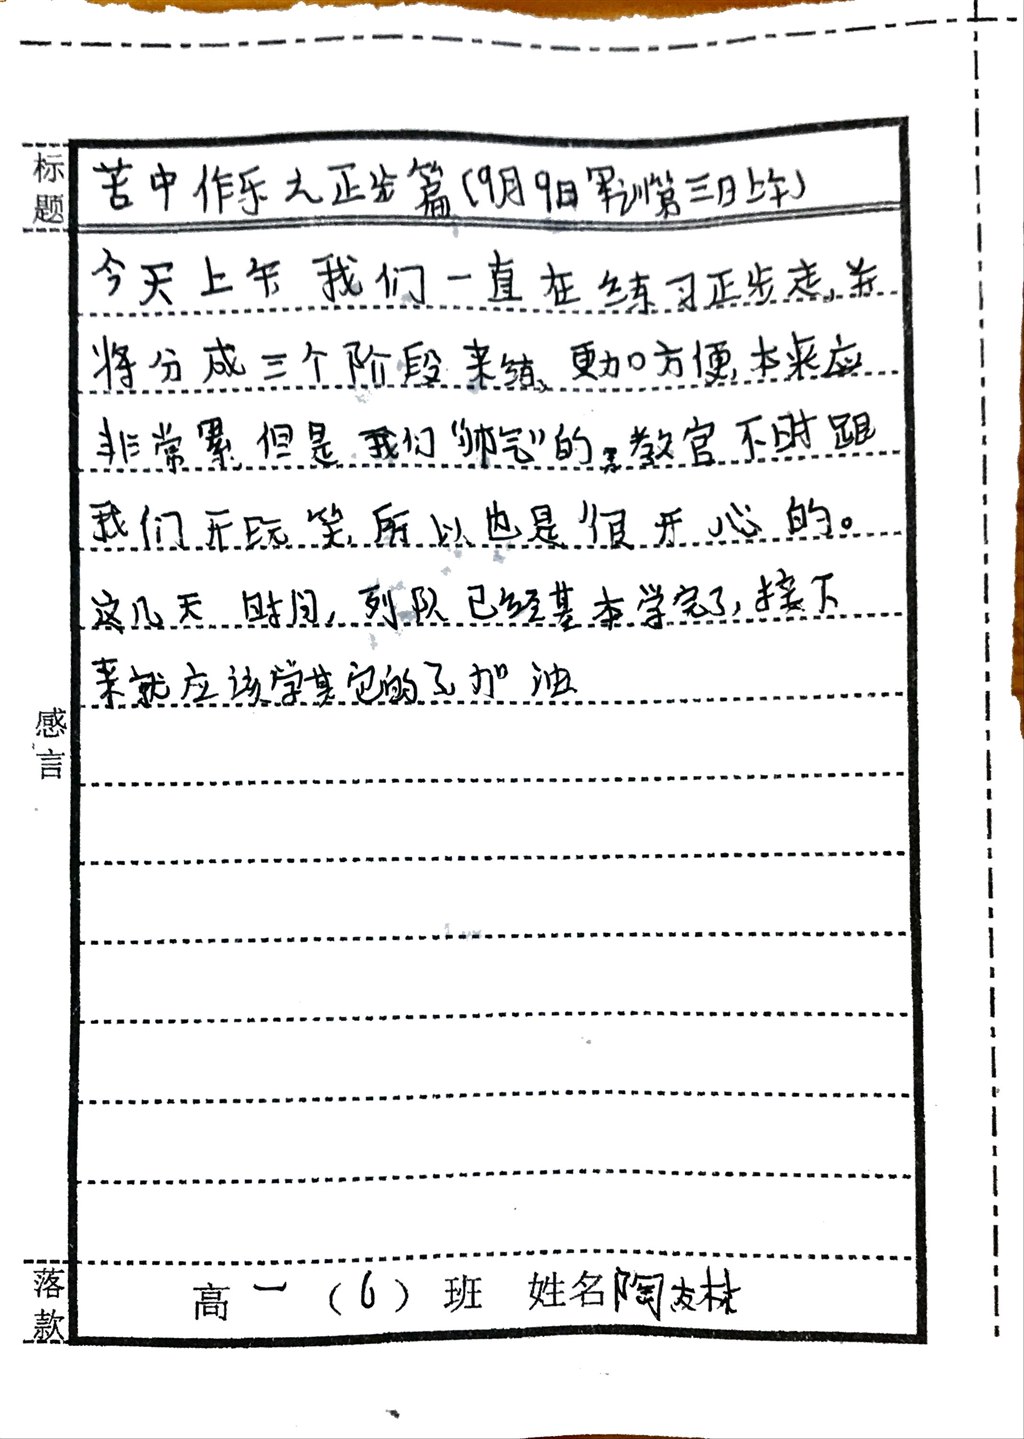 标题
苦中作乐之正步篇(9月9日军训第三日上午)
今天上午我们一直在练习正步走,并
将分成三个阶段来练,更加方便,本来应
非常累,但是我们“帅气”的教官不时跟
我们开玩笑,所以也是很开心的。
这几天时间,列队已经基本学完了,接下
来就应该学其它的了加油
感言
落款
高一(6)班 姓名陶友林